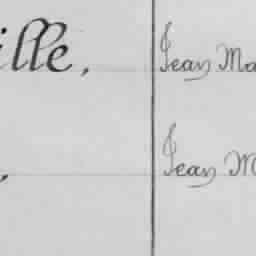 ille, Jean Ma
, Jean M